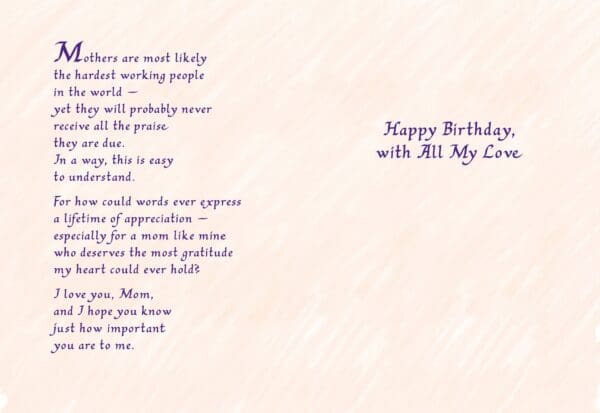 Mothers are most likely
the hardest working people
in the world —
yet they will probably never
receive all the praise
they are due.
In a way, this is easy
to understand.
For how could words ever express
a lifetime of appreciation —
especially for a mom like mine
who deserves the most gratitude
my heart could ever hold?
I love you, Mom,
and I hope you know
just how important
you are to me.
Happy Birthday,
with All My Love